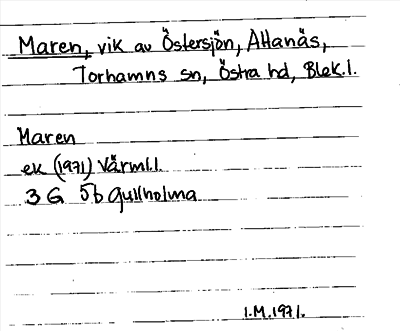 Maren, vik av Östersjön, Attanäs,
Torhamns sn, Östra hd, Blek.l.
Maren
ek (1971) Värml.l.
3 G 5b Gullholma
I.M.1971.